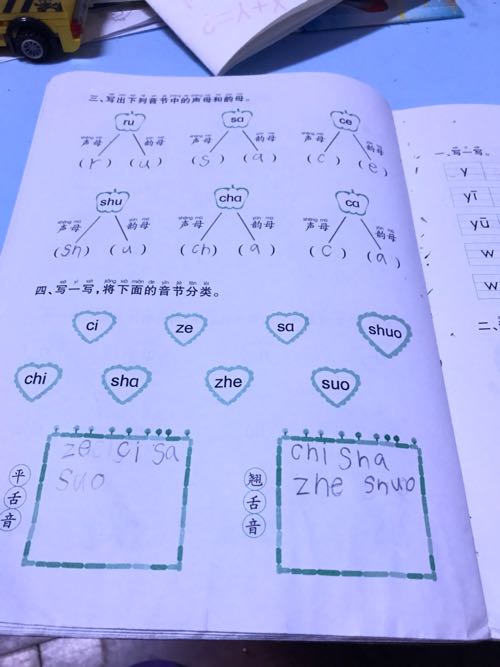 Y+Y=?
三、写出下列音节中的声母和韵母。
ru sa ce
shēng mǔ yùn mǔ shēng mǔ yùn mǔ shēng mǔ yùn mǔ
声母 韵母 声母 韵母 声母 韵母
(r) (u) (s) (a) (c) (e)
shu cha ca
shēng mǔ yùn mǔ shēng mǔ yùn mǔ shēng mǔ yùn mǔ
声母 韵母 声母 韵母 声母 韵母
(sh) (u) (ch) (a) (c) (a)
四、写一写,将下面的音节分类。
ci ze sa shuo
chi sha zhe suo
平舌音
ze ci sa
suo
翘舌音
chi sha
zhe shuo
一、写一写。
y
yī
yū
w
w
二、